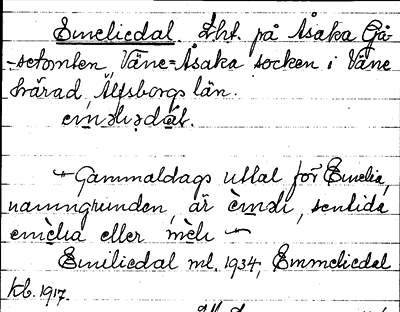 Emeliedal Lht. på Åsaka Gå-
-setomten, Väne-Åsaka socken i Väne
härad, Älfsborgs län.
Gammaldags uttal för Emelia,
namngrunden, är èməli, sentida
emèlia eller mèli
Emiliedal ml. 1934, Emmeliedal
kb. 1917.